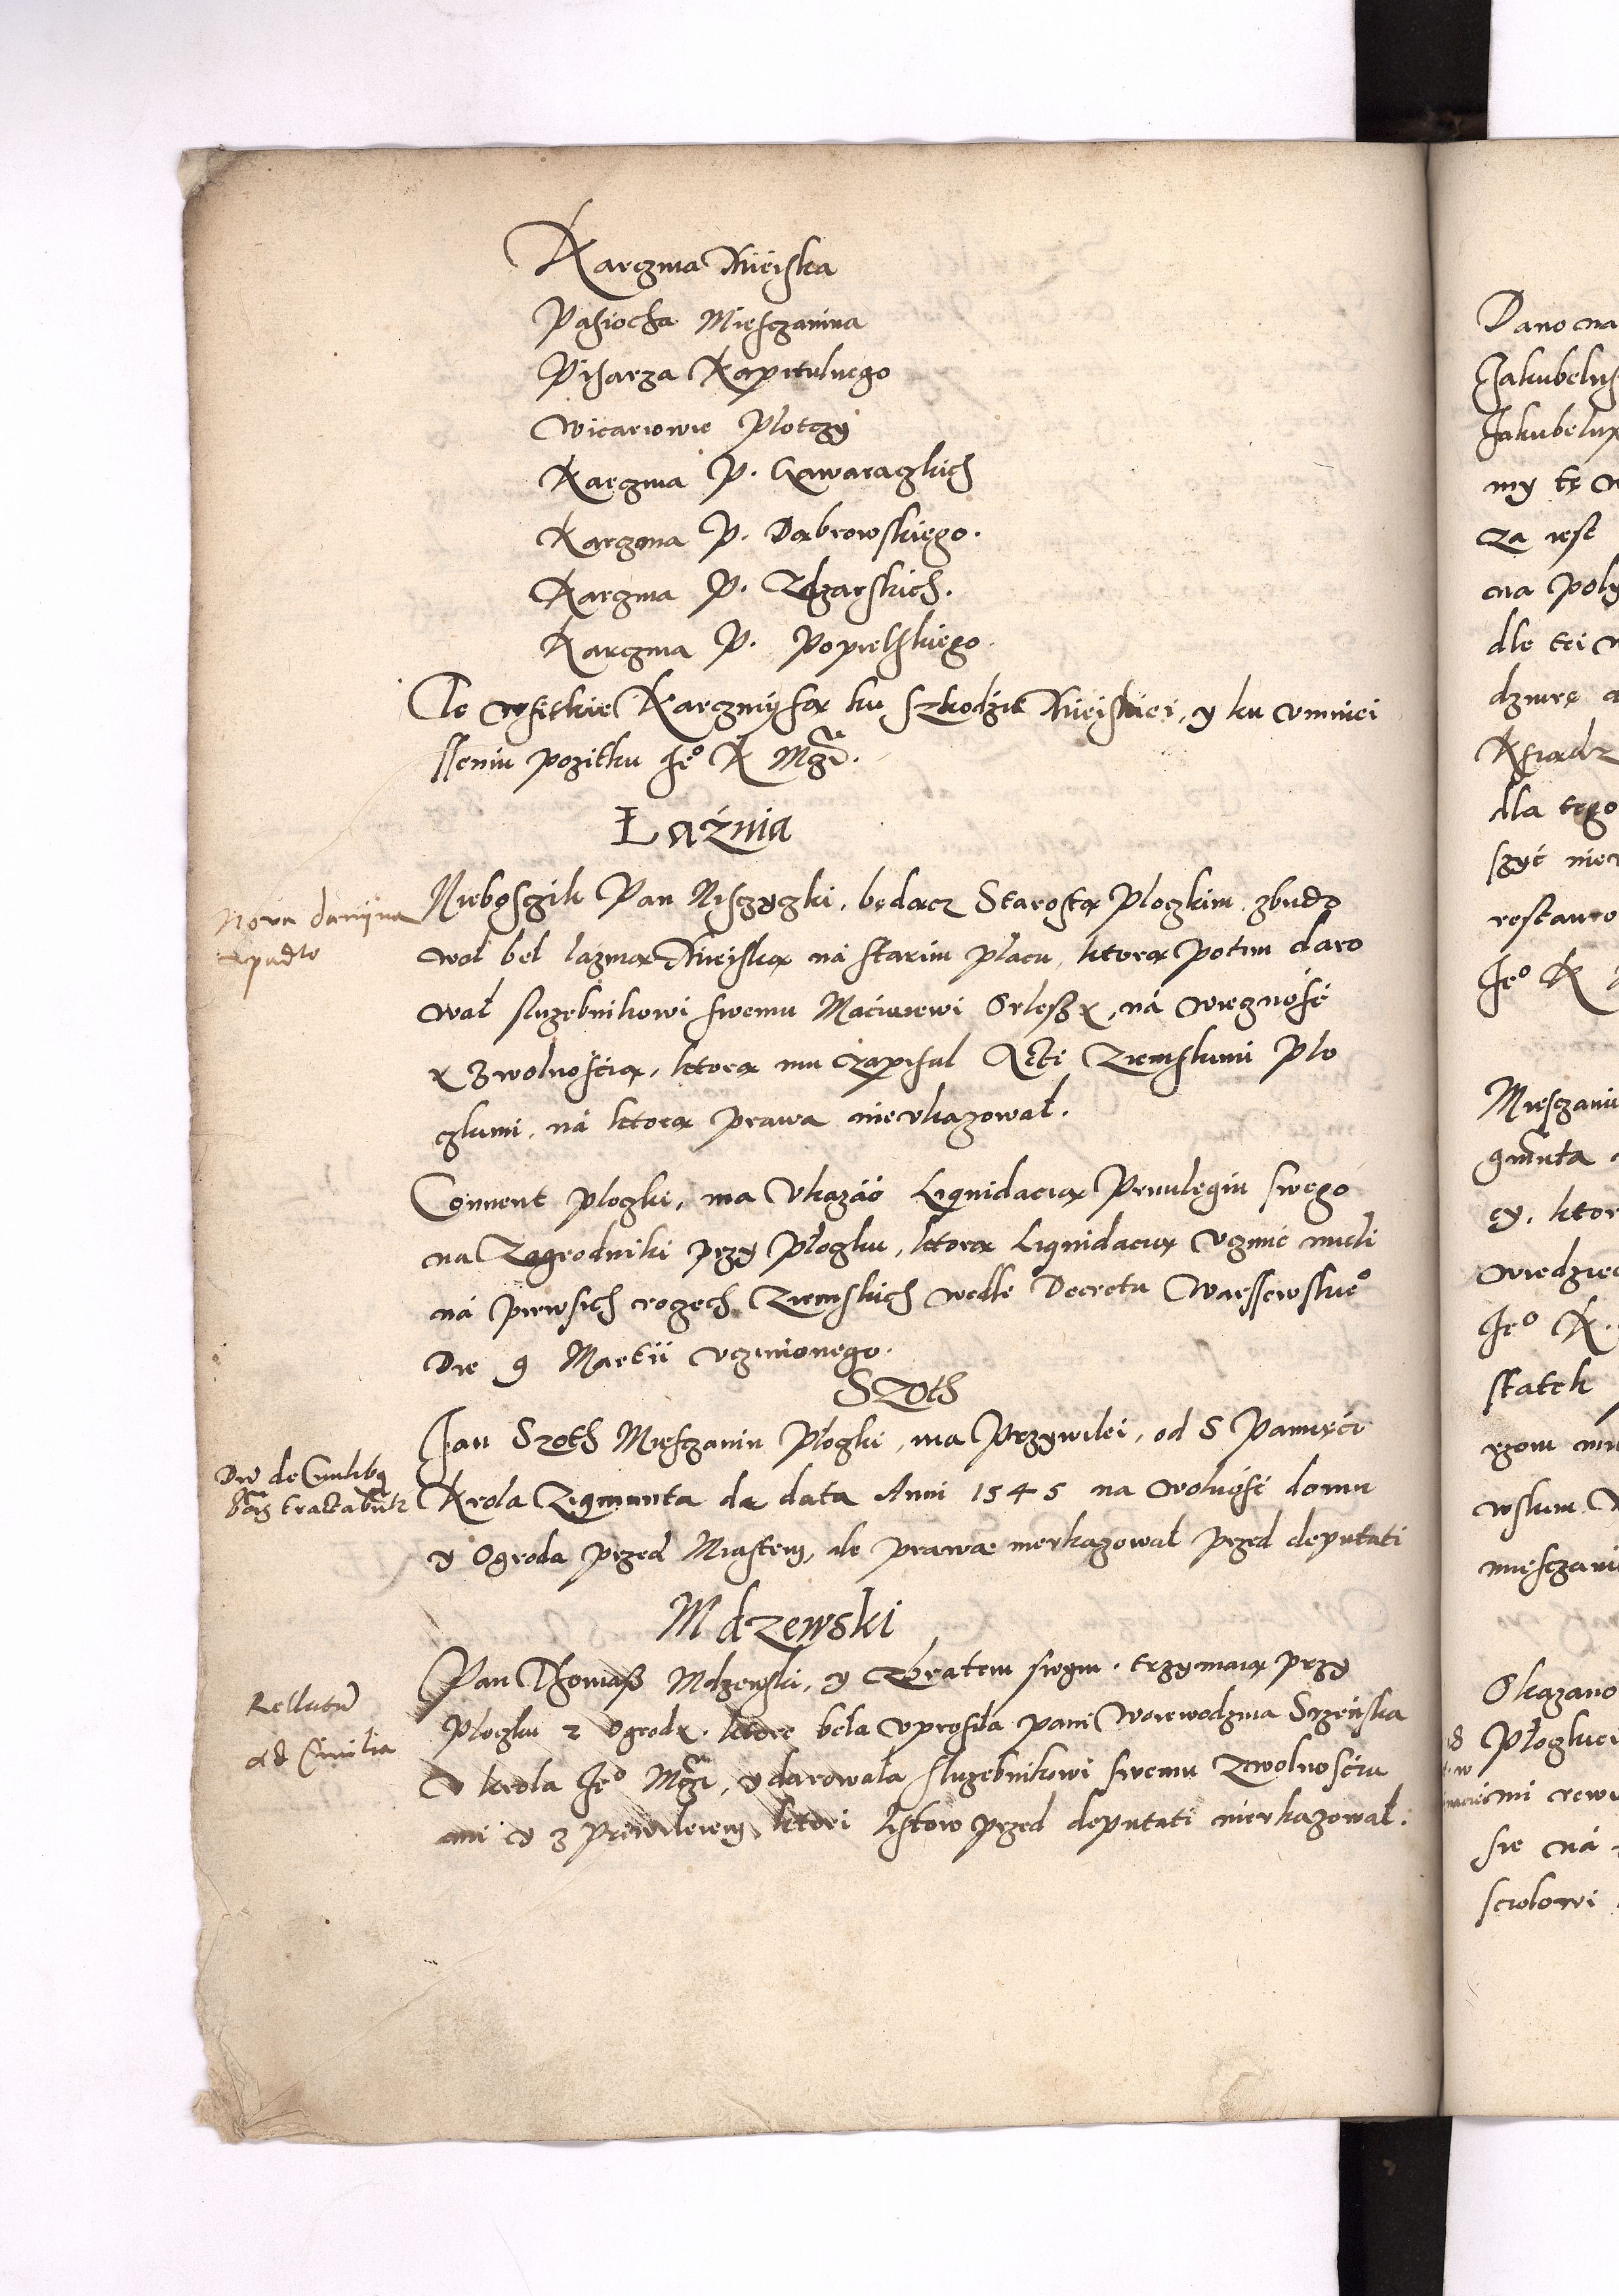 Karczma Mieiska
Pasiocha Miesczanina
Pisarza Kapitulnego
Wicariowie Plotczy
Karczma P. Gawaraczkich
Karczma P. Dąbrowskiego.
Karczma P. Zdzarskich.
Karczma P. Popielskiego.
Te wsitkie Karczmy są ku szkodzie Mieiskiei, y ku vmniei
sseniu pozitku Je° K Mczi.
Łaźnia
Nova
Nieboszcik Pan Nisczyczki, będącz Starostą Ploczkim zbudo
wał beł laznią Mieiską ná starim placu, ktorą potim daro
wał sluzebnikowi swemu Maciieiewi Orlęss, ná wiecznosć
z zwolnoscią, ktorą mu zapisal Akti Ziemskimi Plo
czkimi, ná ktorą prawa nievkazował.
Conuent ploczki, ma Vkazáć Liquidacią Priuilegiu swego
na Zagrodniki przy Płoczku, ktorą Liquidacią vcznić mieli
ná pirwsich roczech Ziemskich wedle Decretu Warssewskie°
Die 9 Martii vczinionego.
Szoth
Die de Ciuilibus
bonis tractabitur
Jan Szoth Miesczanin Płoczki, ma Przywilei, od S Pamięci
Krola Zigmunta da data Anni 1545 na wolnosć domu
y Ogroda przed Miastem, ale prawa nievkazował przed deputati
Mdzewski
Pan Thomass Mdzewski, y Zbratem swym. trzymaią przy
Ploczku 2 Ogrody. ktore beła vprosiła pani Woiewodzina Srzenska
ad Ciuilia
V krola Je° Mczi, y darowała sluzebnikowi swemu Zwolnoscia
ani y z Priwileiem ktori listow przed deputati nievkazował.
Dano na
Jakubelus
my tę
za iest
na poly
dle tei
dziurę
Ksiądz
dla tego
szyć
restauro
Je° K
Miesczani
gmunta
ey. ktor
wiedziec
Je° K.
statek
Okazano
Płoczkiei
sie ná